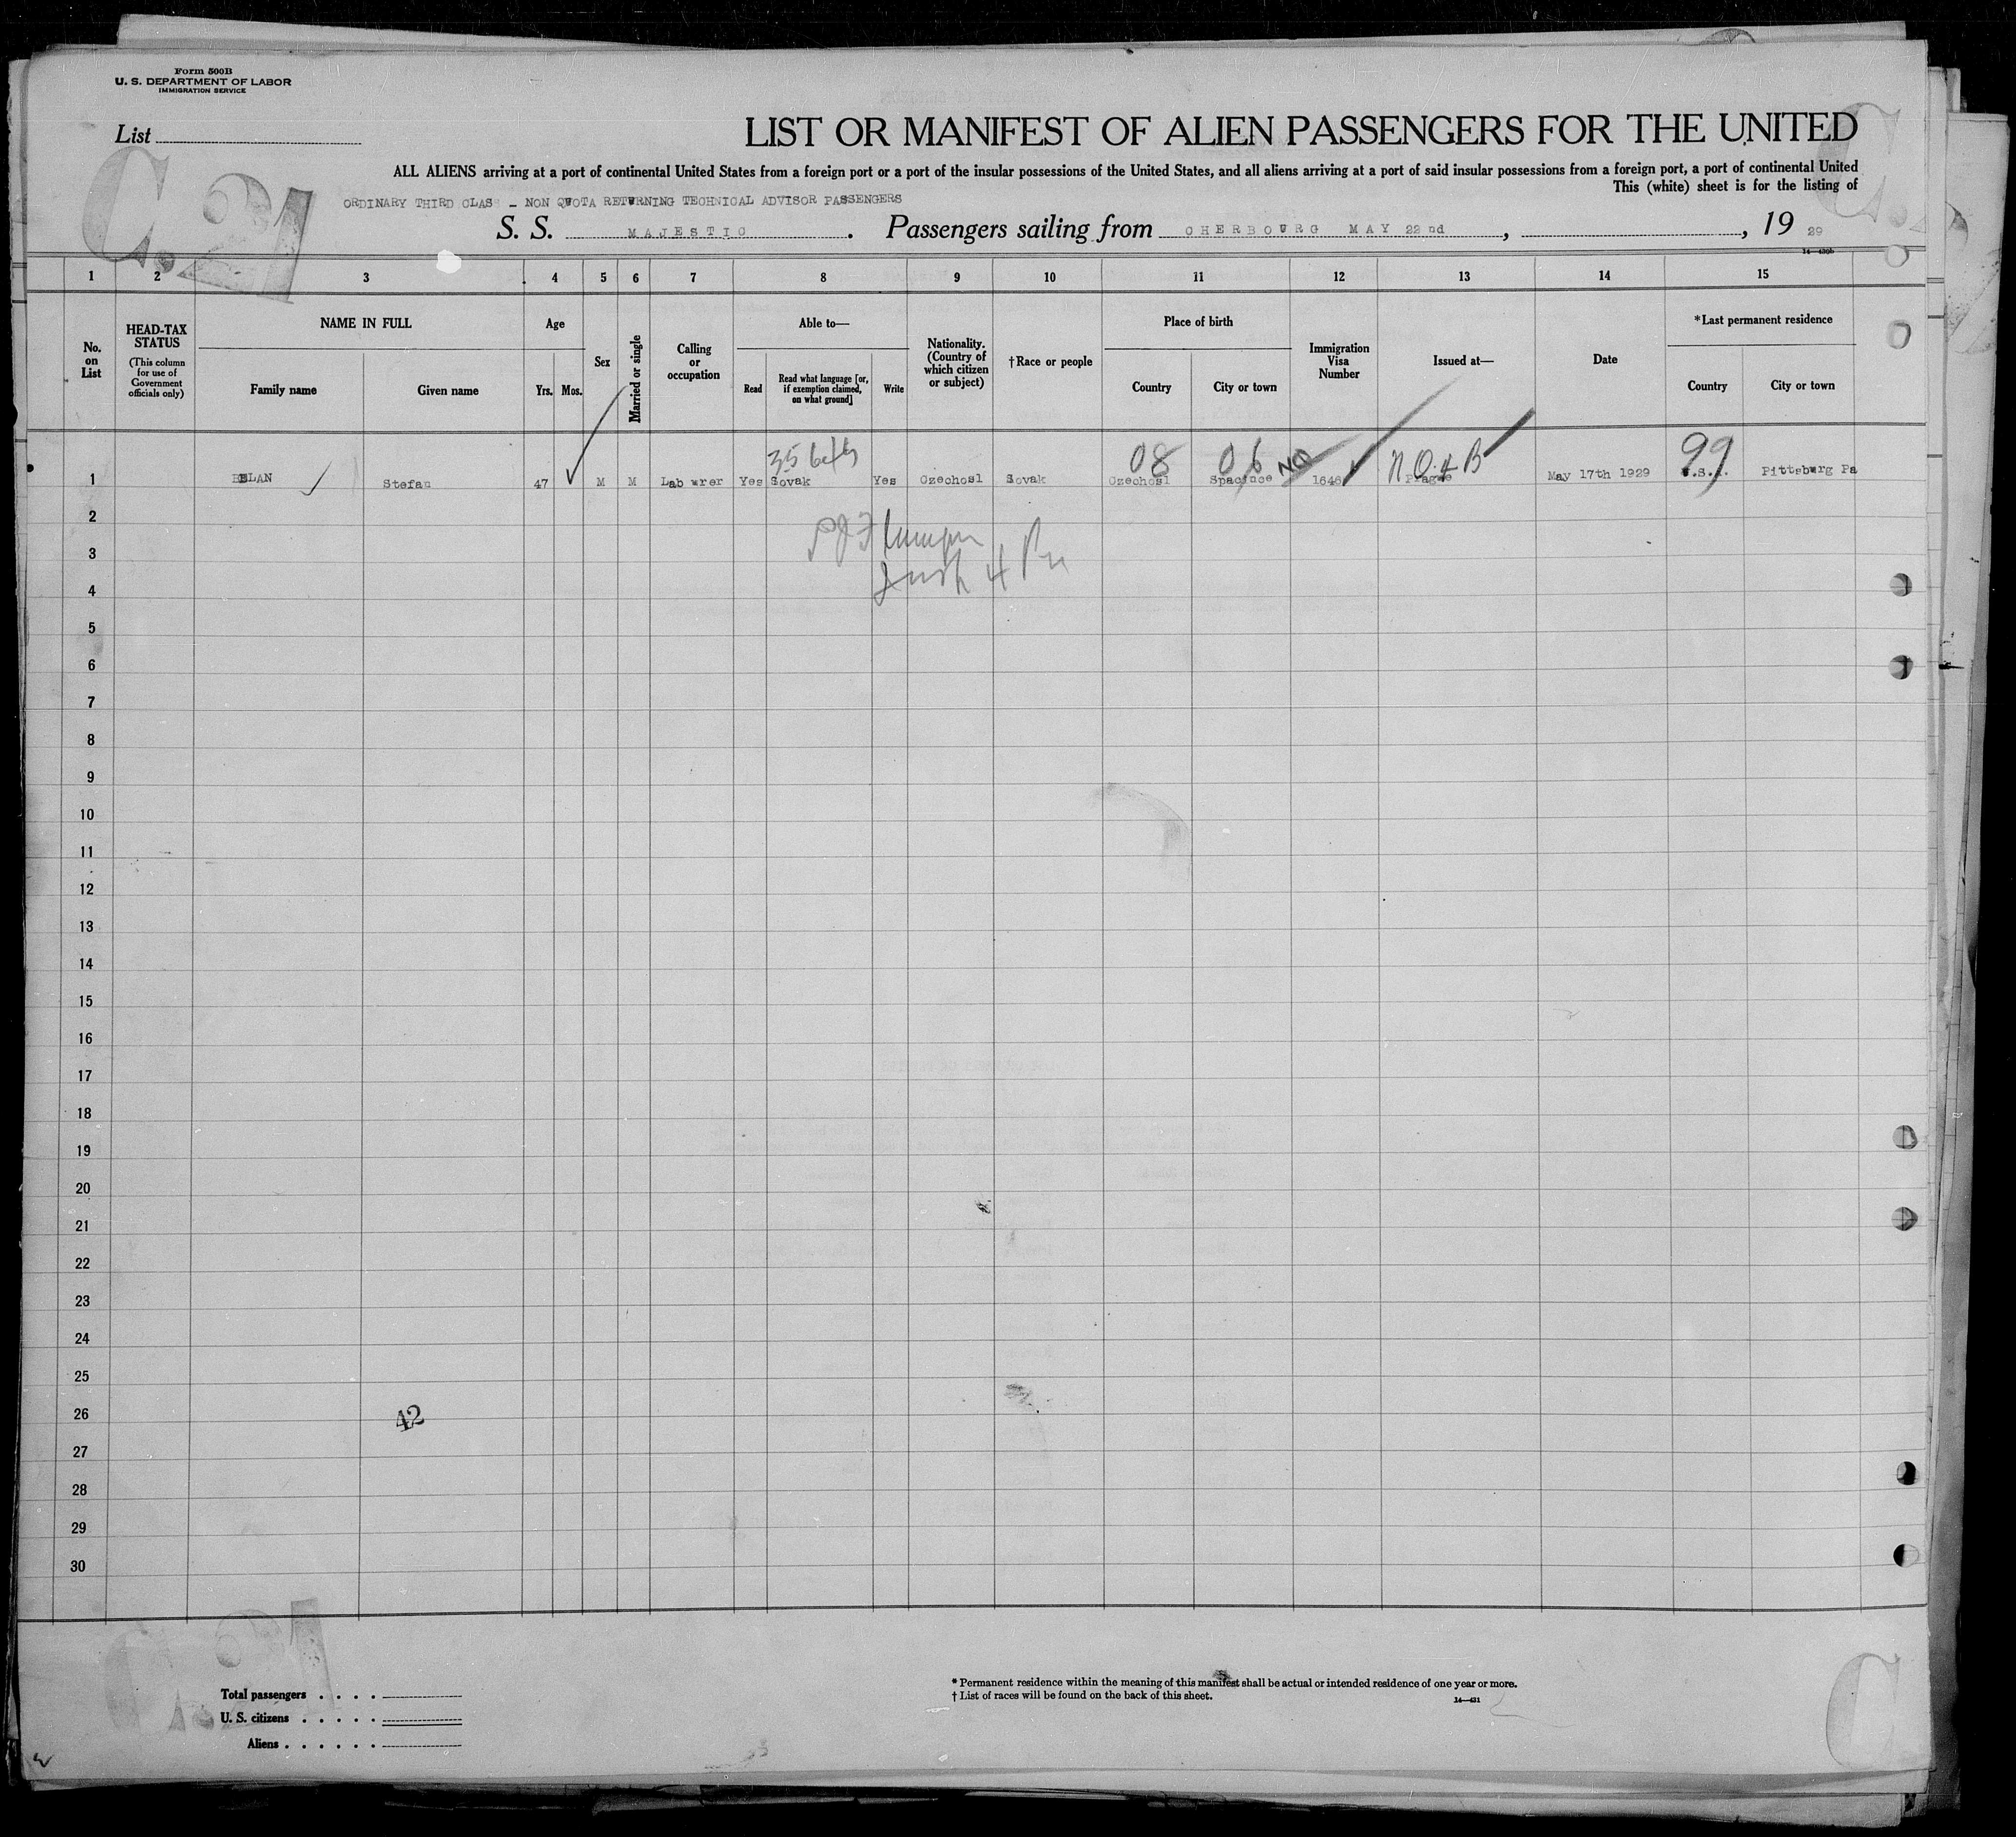 Form 500B
U. S. DEPARTMENT OF LABOR
IMMIGRATION SERVICE
List
C.21
LIST OR MANIFEST OF ALIEN PASSENGERS FOR THE UNITED
ALL ALIENS arriving at a port of continental United States from a foreign port or a port of the insular possessions of the United States, and all aliens arriving at a port of said insular possessions from a foreign port, a port of continental United
This (white) sheet is for the listing of
ORDINARY THIRD CLASS - NON QUOTA RETURNING TECHNICAL ADVISOR PASSENGERS
S. S. MAJESTIC . Passengers sailing from CHERBOURG MAY 22nd , , 19 29
14—430b
1 2 3 4 5 6 7 8 9 10 11 12 13 14 15
No. on List
HEAD-TAX STATUS
(This column for use of Government officials only)
NAME IN FULL
Family name
Given name
Age
Yrs. Mos.
Sex
Married or single
Calling or occupation
Able to—
Read
Read what language [or, if exemption claimed, on what ground]
Write
Nationality. (Country of which citizen or subject)
†Race or people
Place of birth
Country
City or town
Immigration Visa Number
Issued at—
Date
*Last permanent residence
Country
City or town
08 06 NQ N.Q.4 B 99
1 BELAN Stefan 47 M M Lab urer Yes Sovak Yes Czechosl Sovak Czechosl Spacince 1646 Prague May 17th 1929 U.S.A. Pittsburg Pa
2
3
4
5
6
7
8
9
10
11
12
13
14
15
16
17
18
19
20
21
22
23
24
25
26
42
27
28
29
30
Total passengers . . . .
U. S. citizens . . . . .
Aliens . . . . . .
* Permanent residence within the meaning of this manifest shall be actual or intended residence of one year or more.
† List of races will be found on the back of this sheet.
14—431
C